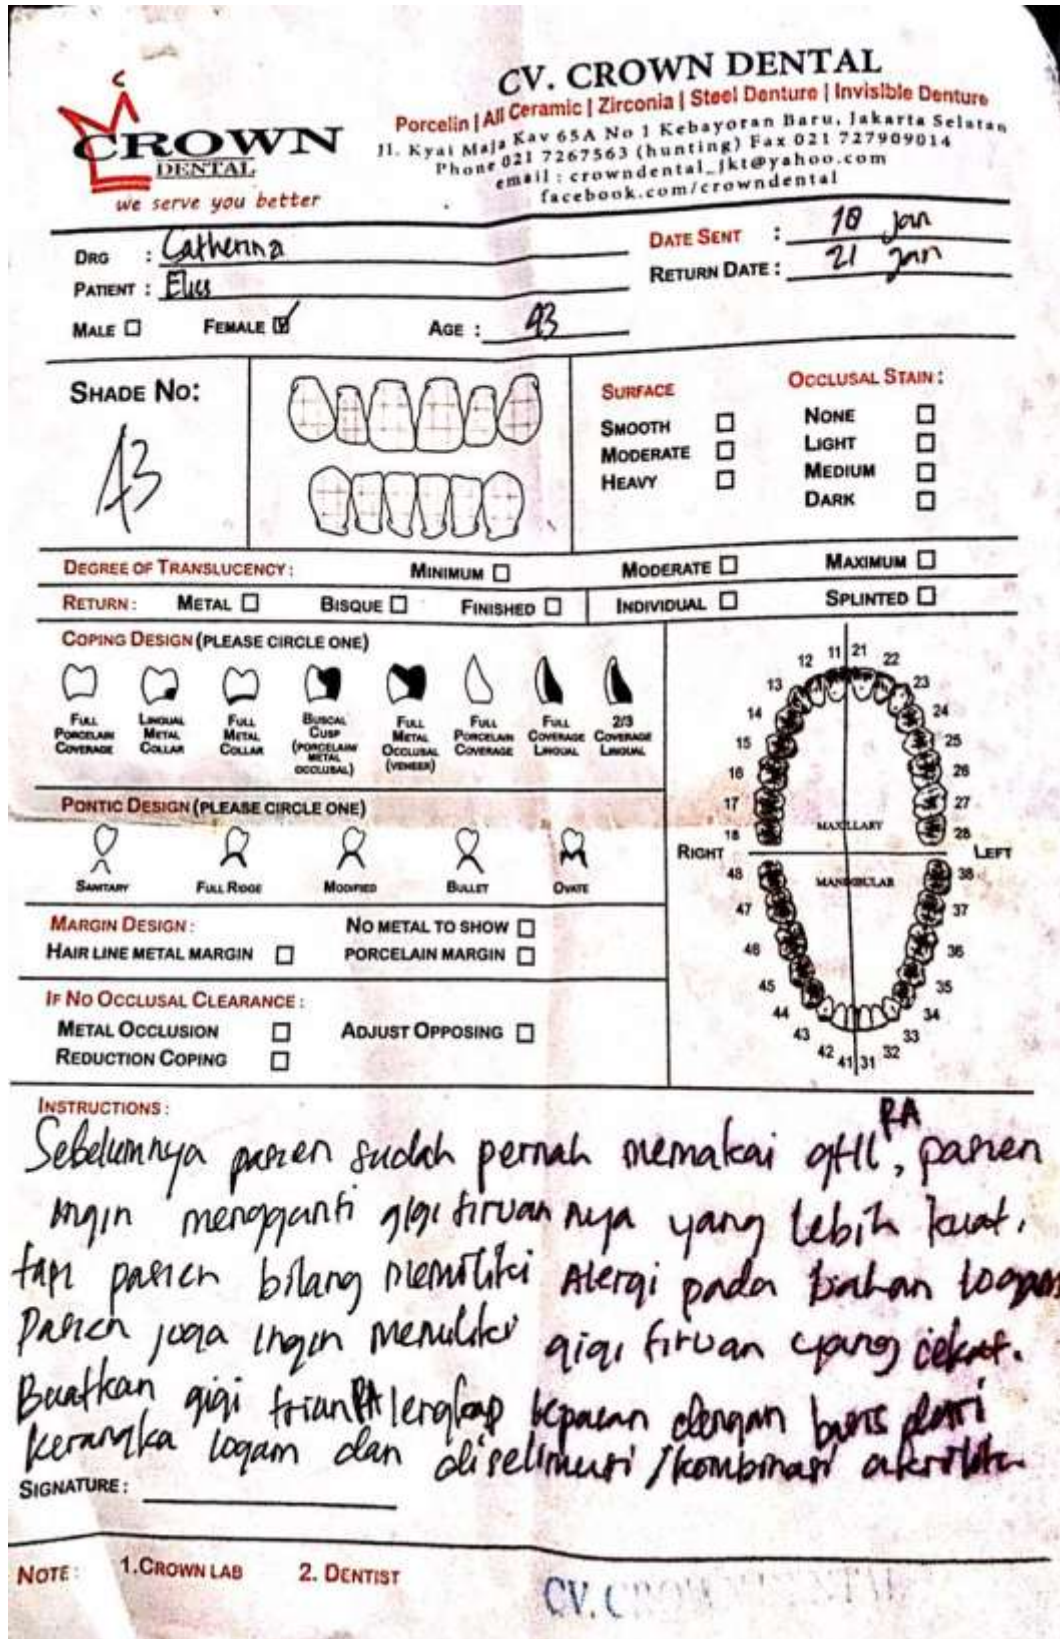 CROWN
DENTAL
we serve you better
CV. CROWN DENTAL
Porcelin | All Ceramic | Zirconia | Steel Denture | Invisible Denture
Jl. Kyai Maja Kav 65A No 1 Kebayoran Baru, Jakarta Selatan
Phone 021 7267563 (hunting) Fax 021 727909014
email : crowndental_jkt@yahoo.com
facebook.com/crowndental
DRG : Catherina
PATIENT :
MALE FEMALE AGE :
DATE SENT : Jan
RETURN DATE : 21 Jan
SHADE NO:
A3
SURFACE
SMOOTH
MODERATE
HEAVY
OCCLUSAL STAIN :
NONE
LIGHT
MEDIUM
DARK
DEGREE OF TRANSLUCENCY : MINIMUM MODERATE MAXIMUM
RETURN : METAL BISQUE FINISHED INDIVIDUAL SPLINTED
COPING DESIGN (PLEASE CIRCLE ONE)
FULL PORCELAIN COVERAGE
LINGUAL METAL COLLAR
FULL METAL COLLAR
BUSCAL CUSP (PORCELAIN METAL OCCLUSAL)
FULL METAL OCCLUSAL (VENEER)
FULL PORCELAIN COVERAGE
FULL COVERAGE LINGUAL
2/3 COVERAGE LINGUAL
PONTIC DESIGN (PLEASE CIRCLE ONE)
SANITARY FULL RIDGE MODIFIED BULLET OVATE
MARGIN DESIGN :
HAIR LINE METAL MARGIN
NO METAL TO SHOW
PORCELAIN MARGIN
IF NO OCCLUSAL CLEARANCE :
METAL OCCLUSION
REDUCTION COPING
ADJUST OPPOSING
11 21
12 22
13 23
14 24
15 25
16 26
17 27
18 28
MAXILLARY
RIGHT LEFT
MANDIBULAR
48 38
47 37
46 36
45 35
44 34
43 33
42 32
41 31
INSTRUCTIONS :
RA
Sebelumnya pasien sudah pernah memakai , pasien
ingin mengganti gigi tiruan nya yang lebih kuat.
tapi pasien bilang memiliki Alergi pada bahan logam
Pasien juga ingin memiliki gigi tiruan yang cekat.
Buatkan gigi tiruan RA lengkap lepasan dengan dari
kerangka logam dan diselimuti /kombinasi akrilik
SIGNATURE :
NOTE : 1.CROWN LAB 2. DENTIST
CV. C